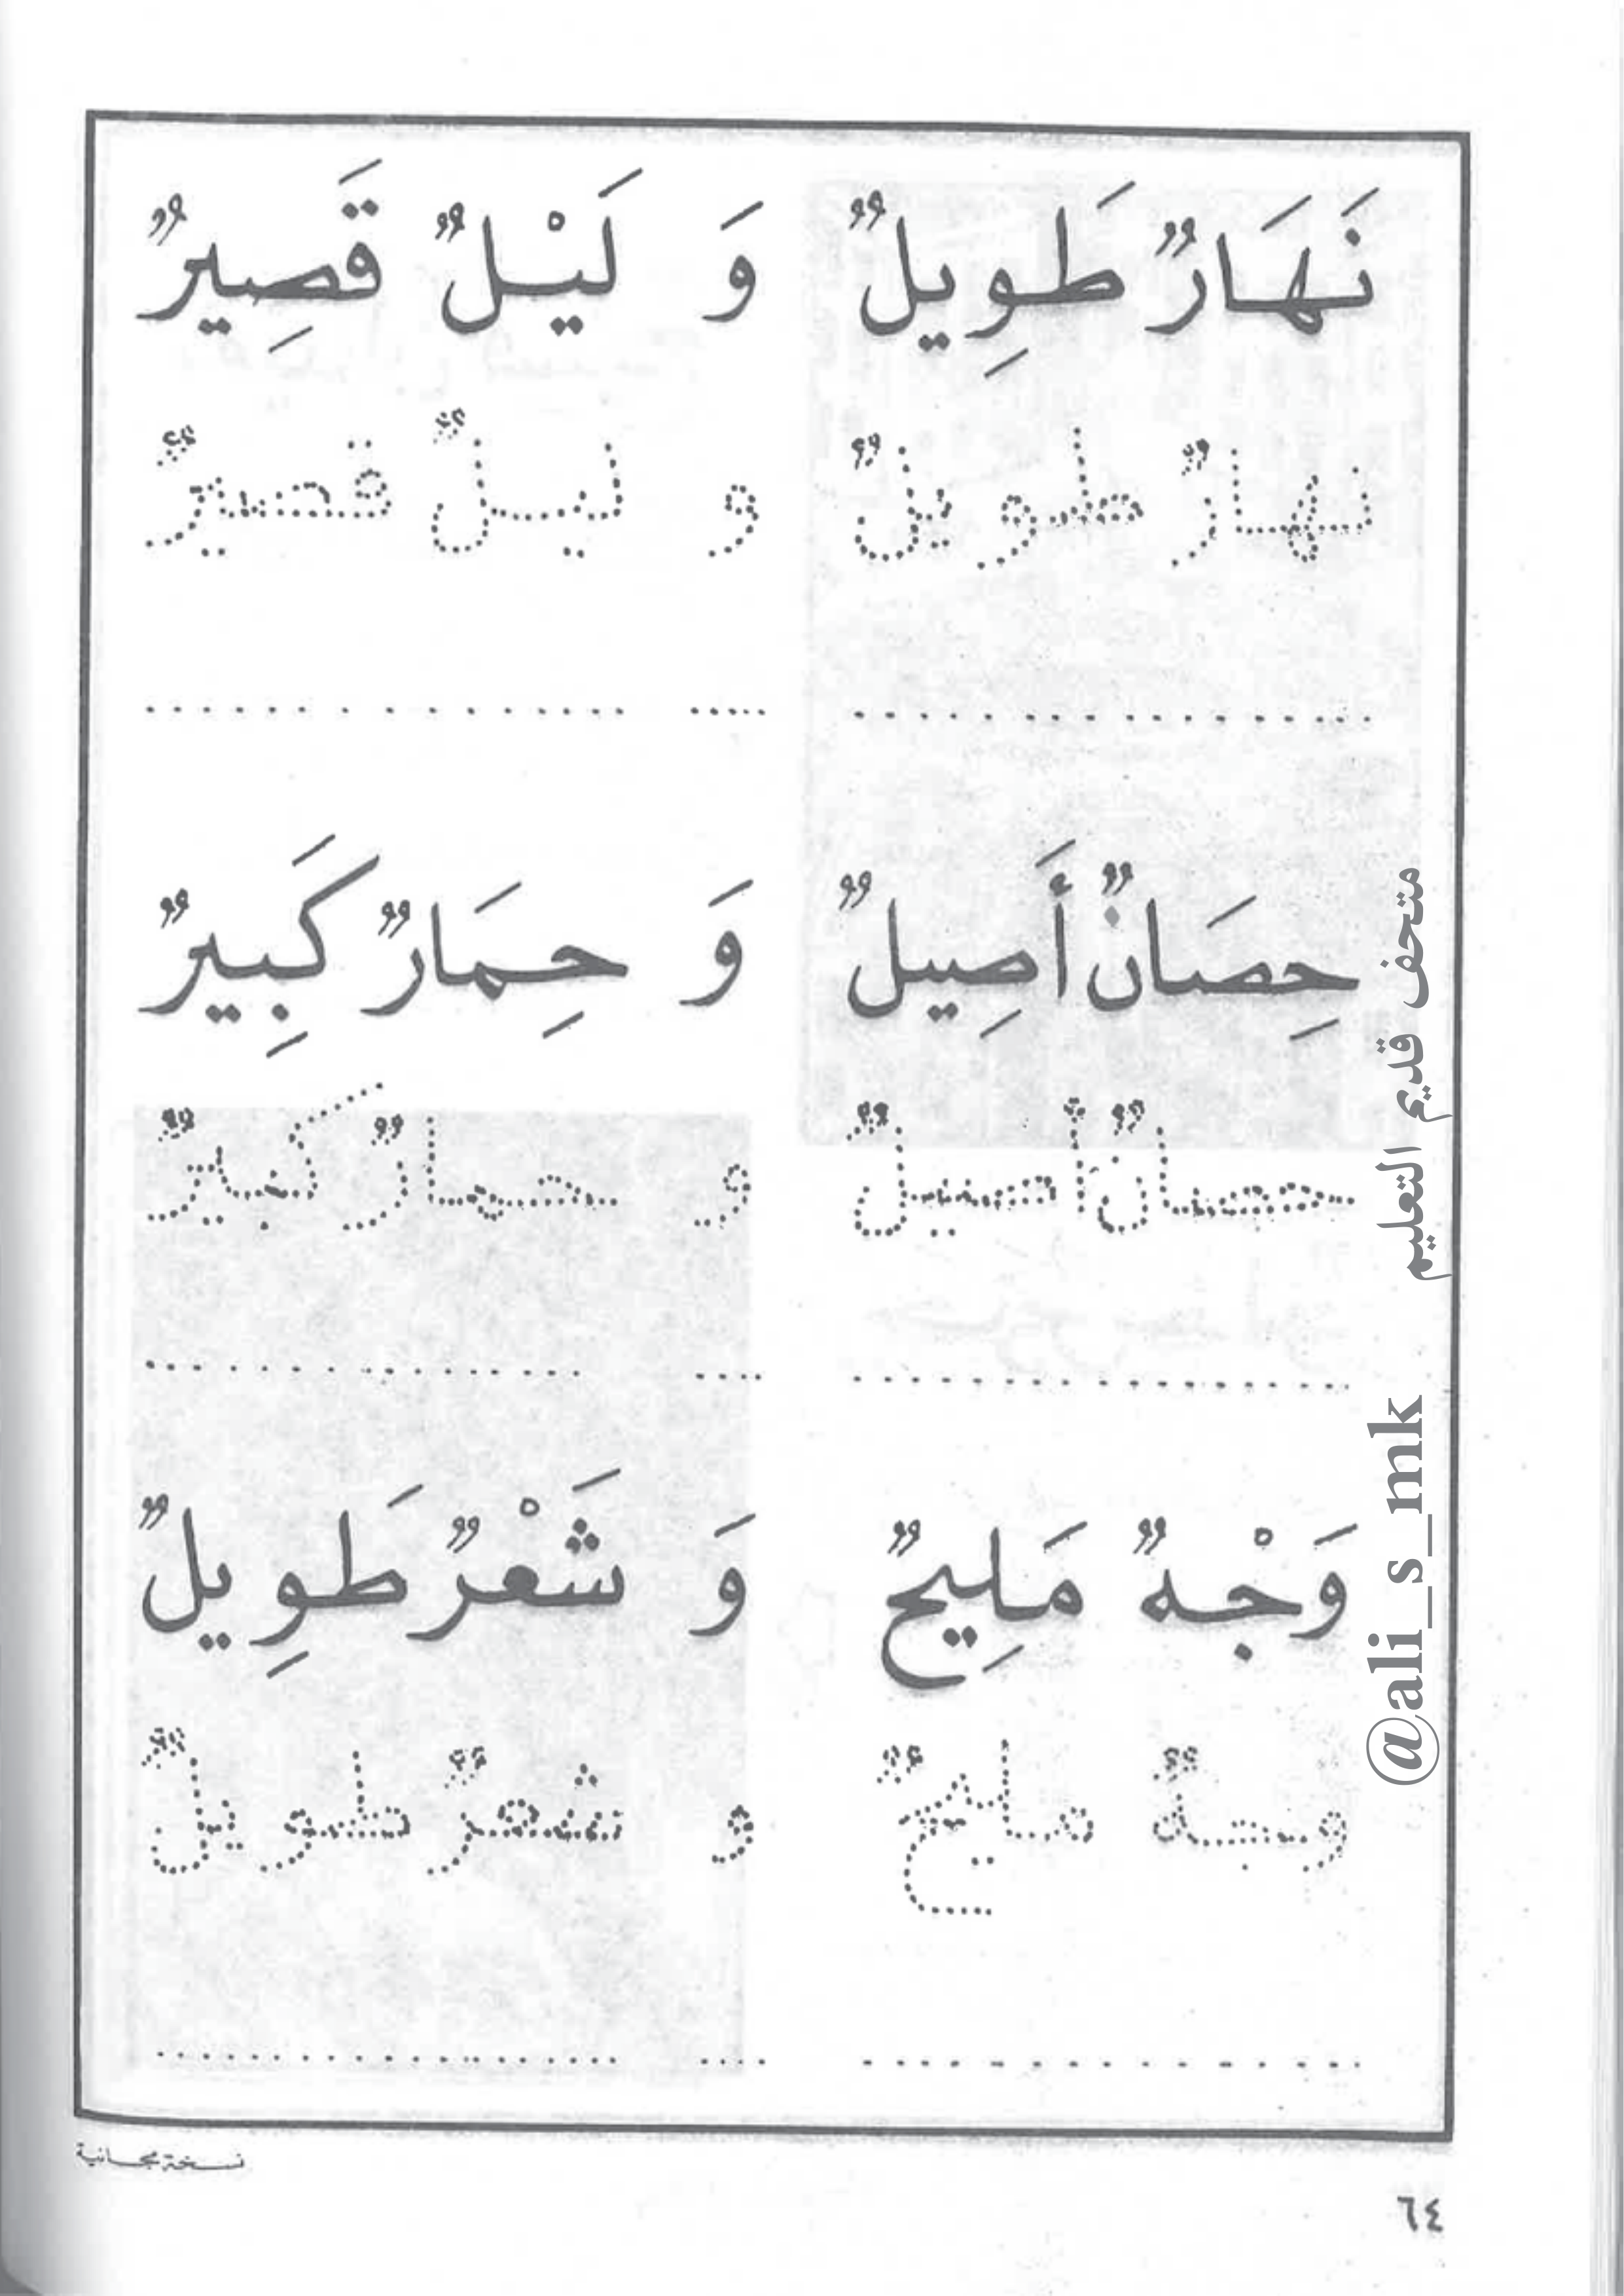 نَهَارٌ طَوِيلٌ وَ لَيْلٌ قَصِيرٌ
نهارٌ طويلٌ و ليلٌ قصيرٌ
حِصَانٌ أَصِيلٌ وَ حِمَارٌ كَبِيرٌ
حصانٌ أصيلٌ و حمارٌ كبيرٌ
وَجْهٌ مَلِيحٌ وَ شَعْرٌ طَوِيلٌ
وجهٌ مليحٌ و شعرٌ طويلٌ
متحف قديم التعليم
@ali_s_mk
نسخة مجانية
٦٤